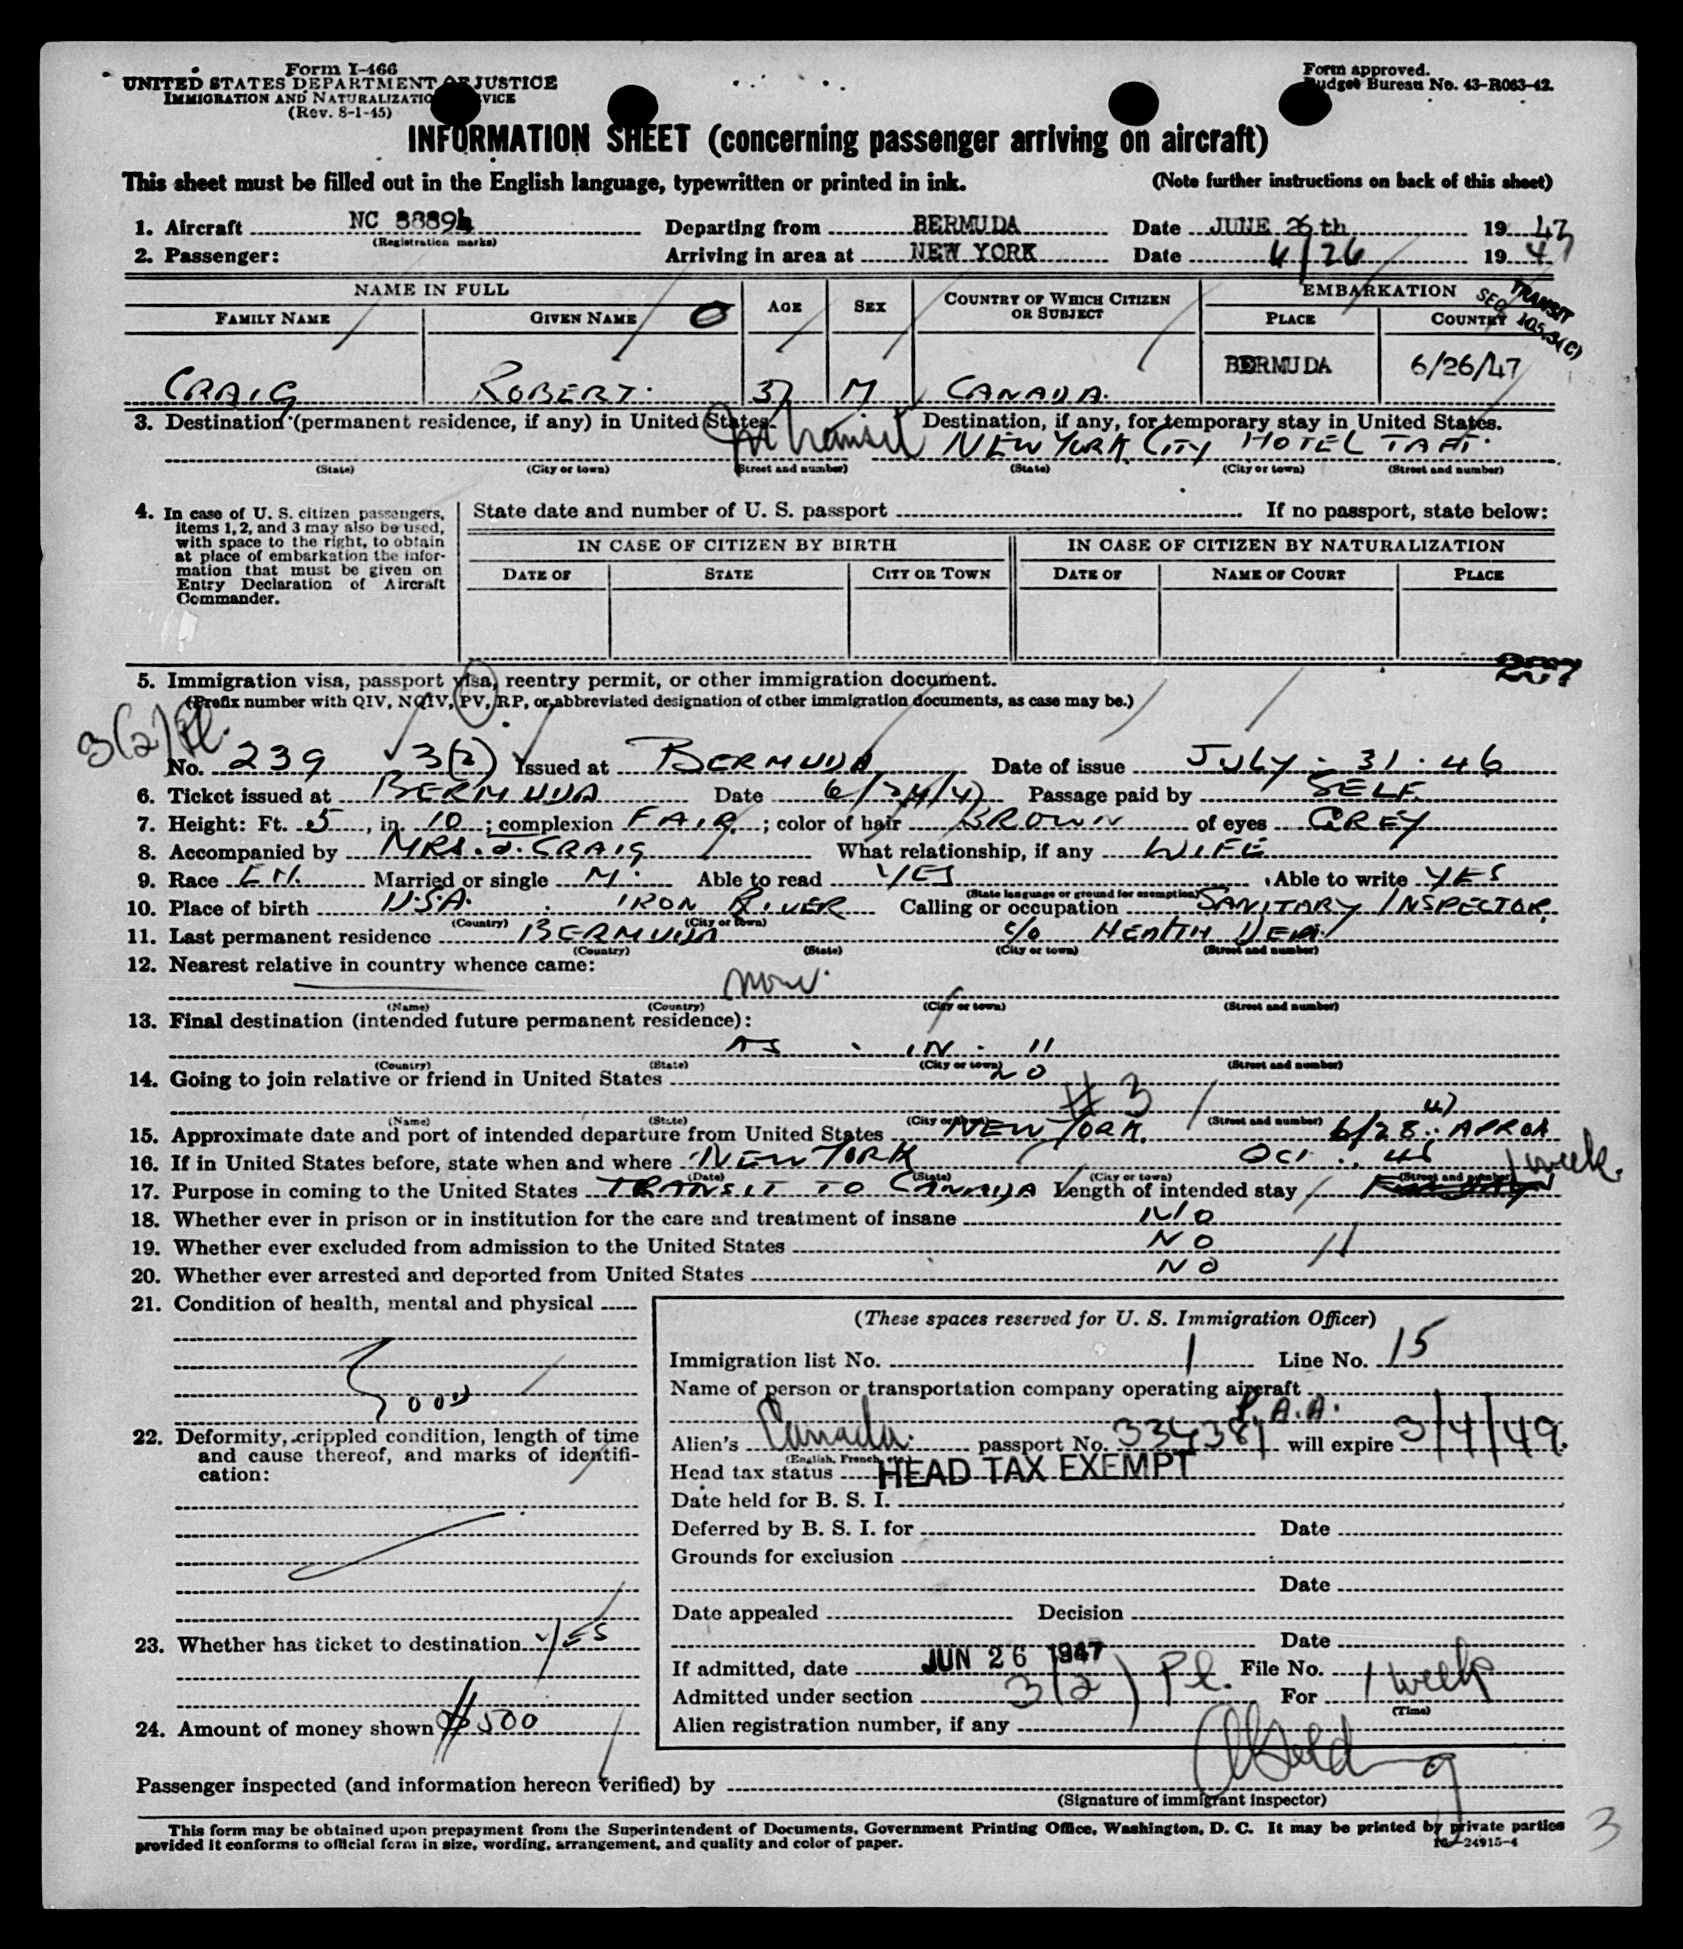 Form I-466
UNITED STATES DEPARTMENT OF JUSTICE
IMMIGRATION AND NATURALIZATION SERVICE
(Rev. 8-1-45)
Form approved.
Budget Bureau No. 43-R063-42.
INFORMATION SHEET (concerning passenger arriving on aircraft)
This sheet must be filled out in the English language, typewritten or printed in ink. (Note further instructions on back of this sheet)
1. Aircraft NC 88894 Departing from BERMUDA Date JUNE 26th 1947
(Registration marks)
2. Passenger: Arriving in area at NEW YORK Date 6/26 1947
NAME IN FULL AGE SEX COUNTRY OF WHICH CITIZEN OR SUBJECT EMBARKATION
TRANSIT
SEC 105.3(C)
FAMILY NAME GIVEN NAME PLACE COUNTRY
CRAIG ROBERT. 37 M CANADA. BERMUDA 6/26/47
3. Destination (permanent residence, if any) in United States. Destination, if any, for temporary stay in United States.
In transit NEW YORK CITY HOTEL TAFT.
(State) (City or town) (Street and number) (State) (City or town) (Street and number)
4. In case of U. S. citizen passengers, items 1, 2, and 3 may also be used, with space to the right, to obtain at place of embarkation the information that must be given on Entry Declaration of Aircraft Commander.
State date and number of U. S. passport If no passport, state below:
IN CASE OF CITIZEN BY BIRTH IN CASE OF CITIZEN BY NATURALIZATION
DATE OF STATE CITY OR TOWN DATE OF NAME OF COURT PLACE
5. Immigration visa, passport visa, reentry permit, or other immigration document.
(Prefix number with QIV, NQIV, PV, RP, or abbreviated designation of other immigration documents, as case may be.)
3(2) Pl.
No. 239 3(2) Issued at BERMUDA Date of issue JULY. 31. 46
6. Ticket issued at BERMUDA Date 6/24/47 Passage paid by SELF.
7. Height: Ft. 5, in. 10; complexion FAIR.; color of hair BROWN of eyes GREY
8. Accompanied by MRS. J. CRAIG What relationship, if any WIFE
9. Race EN. Married or single M. Able to read YES Able to write YES
(State language or ground for exemption)
10. Place of birth U.S.A. IRON RIVER Calling or occupation SANITARY INSPECTOR.
(Country) (City or town)
11. Last permanent residence BERMUDA c/o HEALTH DEPT.
(Country) (State) (City or town) (Street and number)
12. Nearest relative in country whence came:
None.
(Name) (Country) (City or town) (Street and number)
13. Final destination (intended future permanent residence):
AS . IN . 11
(Country) (State) (City or town) (Street and number)
14. Going to join relative or friend in United States NO
# 3
(Name) (State) (City or town) (Street and number)
15. Approximate date and port of intended departure from United States NEW YORK. 6/28.47 APROX
16. If in United States before, state when and where NEW YORK OCT. 46
(Date) (State) (City or town) (Street and number)
17. Purpose in coming to the United States TRANSIT TO CANADA Length of intended stay 1 week.
18. Whether ever in prison or in institution for the care and treatment of insane NO
19. Whether ever excluded from admission to the United States NO
20. Whether ever arrested and deported from United States NO
21. Condition of health, mental and physical
Good
22. Deformity, crippled condition, length of time and cause thereof, and marks of identification:
23. Whether has ticket to destination YES
24. Amount of money shown $500
(These spaces reserved for U. S. Immigration Officer)
Immigration list No. 1 Line No. 15
Name of person or transportation company operating aircraft
P.A.A.
Alien's Canada. passport No. 334381 will expire 3/4/49.
(English, French, etc.)
Head tax status HEAD TAX EXEMPT
Date held for B. S. I.
Deferred by B. S. I. for Date
Grounds for exclusion
Date
Date appealed Decision
Date
If admitted, date JUN 26 1947 File No.
Admitted under section 3(2) Pl. For 1 week
(Time)
Alien registration number, if any
Passenger inspected (and information hereon verified) by
(Signature of immigrant inspector)
This form may be obtained upon prepayment from the Superintendent of Documents, Government Printing Office, Washington, D. C. It may be printed by private parties
provided it conforms to official form in size, wording, arrangement, and quality and color of paper.
16—24915-4
3